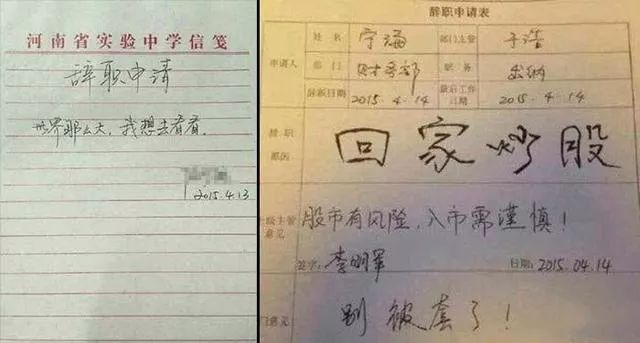 河南省实验中学信笺
辞职申请
世界那么大，我想去看看。
2015.4.13
辞职申请表
申请人
姓名 宁海 部门主管 于浩
部门 财务部 职务 出纳
辞职日期 2015.4.14 最后工作日期 2015.4.14
辞职
原因
回家炒股
级主管
意见
股市有风险，入市需谨慎！
签字： 李明军 日期：2015.04.14
门意见
别被套了！